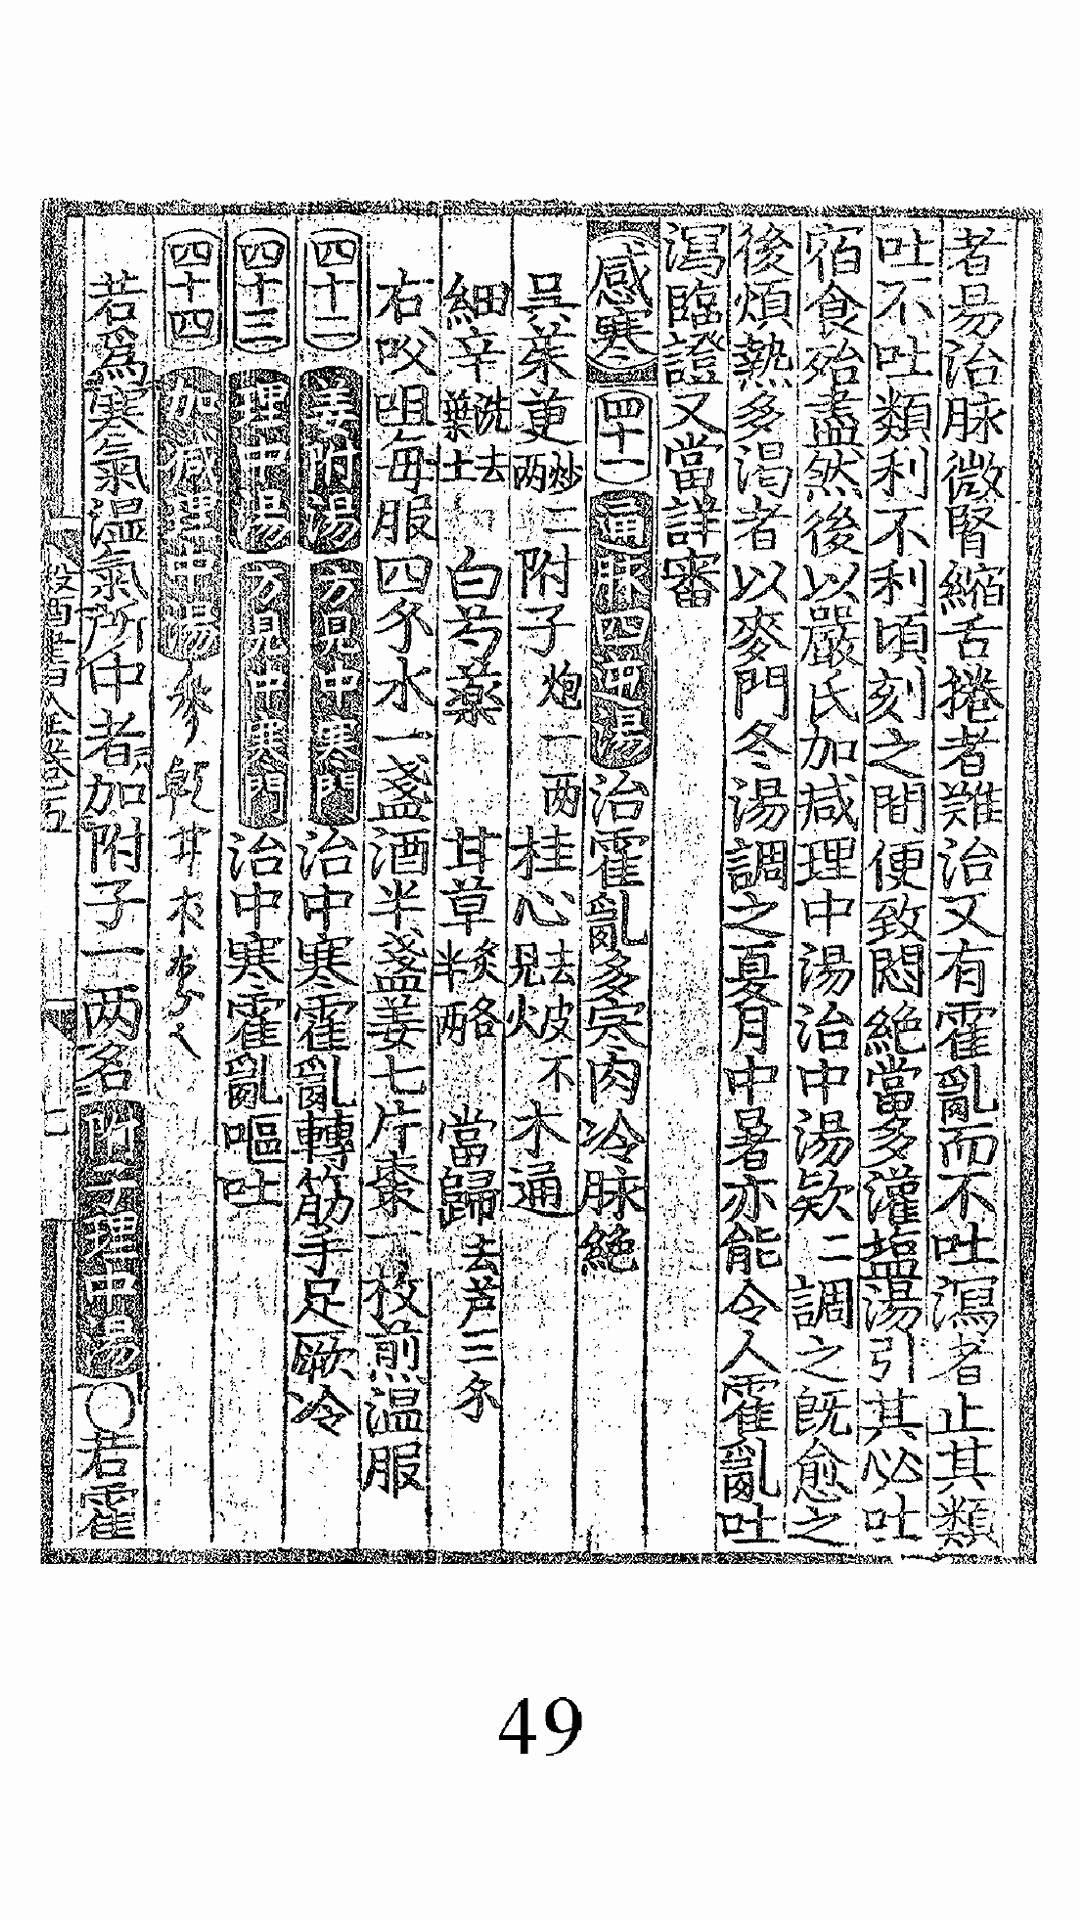 者易治脉微腎縮舌捲者難治又有霍亂而不吐瀉者止其類
吐不吐類利不利頃刻之間便致悶絶當多灌塩湯引其必吐
宿食殆盡然後以嚴氏加减理中湯治中湯欵二調之既愈之
後煩熱多渴者以麥門冬湯調之夏月中暑亦能令人霍亂吐
瀉臨證又當詳審
感寒 四十一 通脉四逆湯 治霍亂多寒肉冷脉絶
吴茱萸炒二两 附子炮一两 桂心去皮不見火 木通
細辛洗去葉土 白芍藥 甘草炙各半两 當歸去芦三
右㕮咀每服四 水一盞酒半盞姜七片棗一枚煎温服
四十二 姜附湯 方見中寒門 治中寒霍亂轉筋手足厥冷
四十三 理中湯 方見中寒門 治中寒霍亂嘔吐
四十四 加减理中湯
若爲寒氣温氣所中者加附子一两名附子理中湯○若霍
49